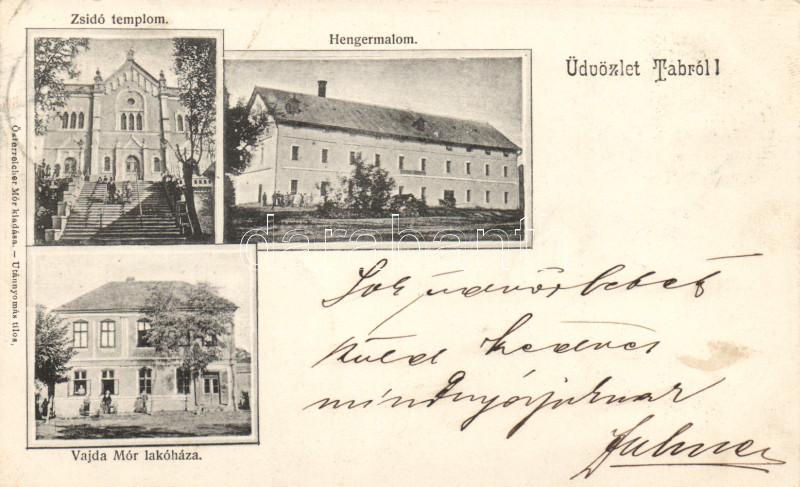 Zsidó templom.
Hengermalom.
Üdvözlet Tabról!
Österreicher Mór kiadása. — Utánnyomás tilos,
darabanth
Sok üdvözletet
küld kedves
mindnyájuknak
Vajda Mór lakóháza.